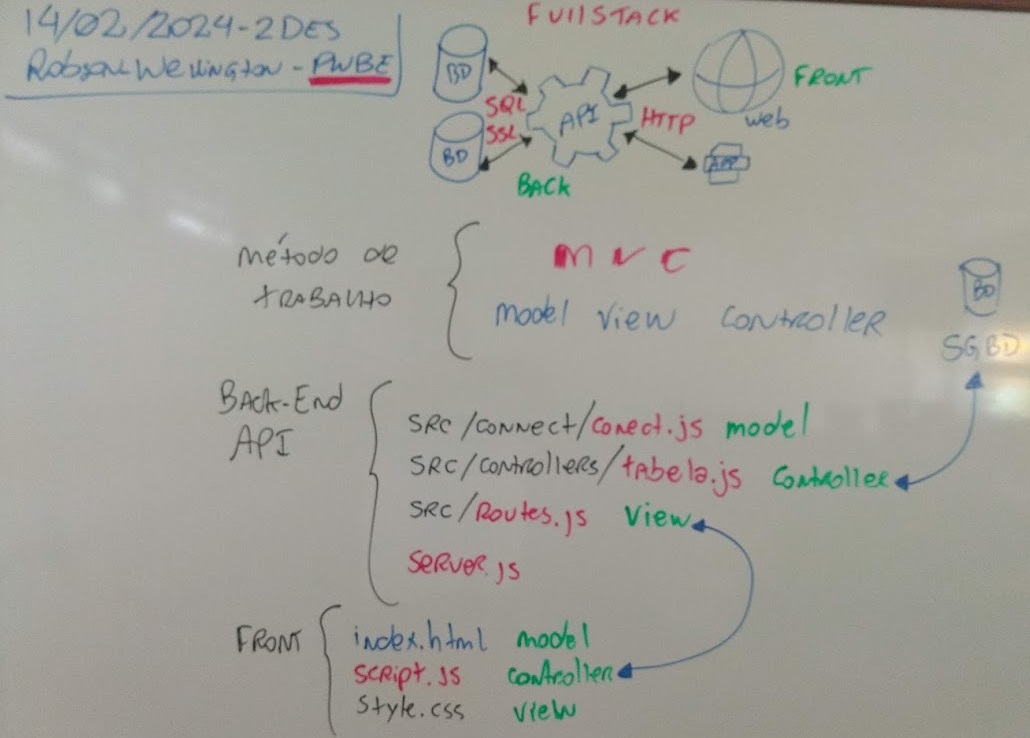 14/02/2024-2DES
Robson Wellington - PWBE
FullSTACK
BD
SQL
SSL
BD
API
BACK
HTTP
web
FRONT
APP
método de
TRABALHO
MVC
model view controller
BD
SGBD
BACK-End
API
SRC/connect/conect.js model
SRC/controllers/tabela.js controller
SRC/Routes.js view
SERVER.js
FRONT
index.html model
script.js controller
style.css view